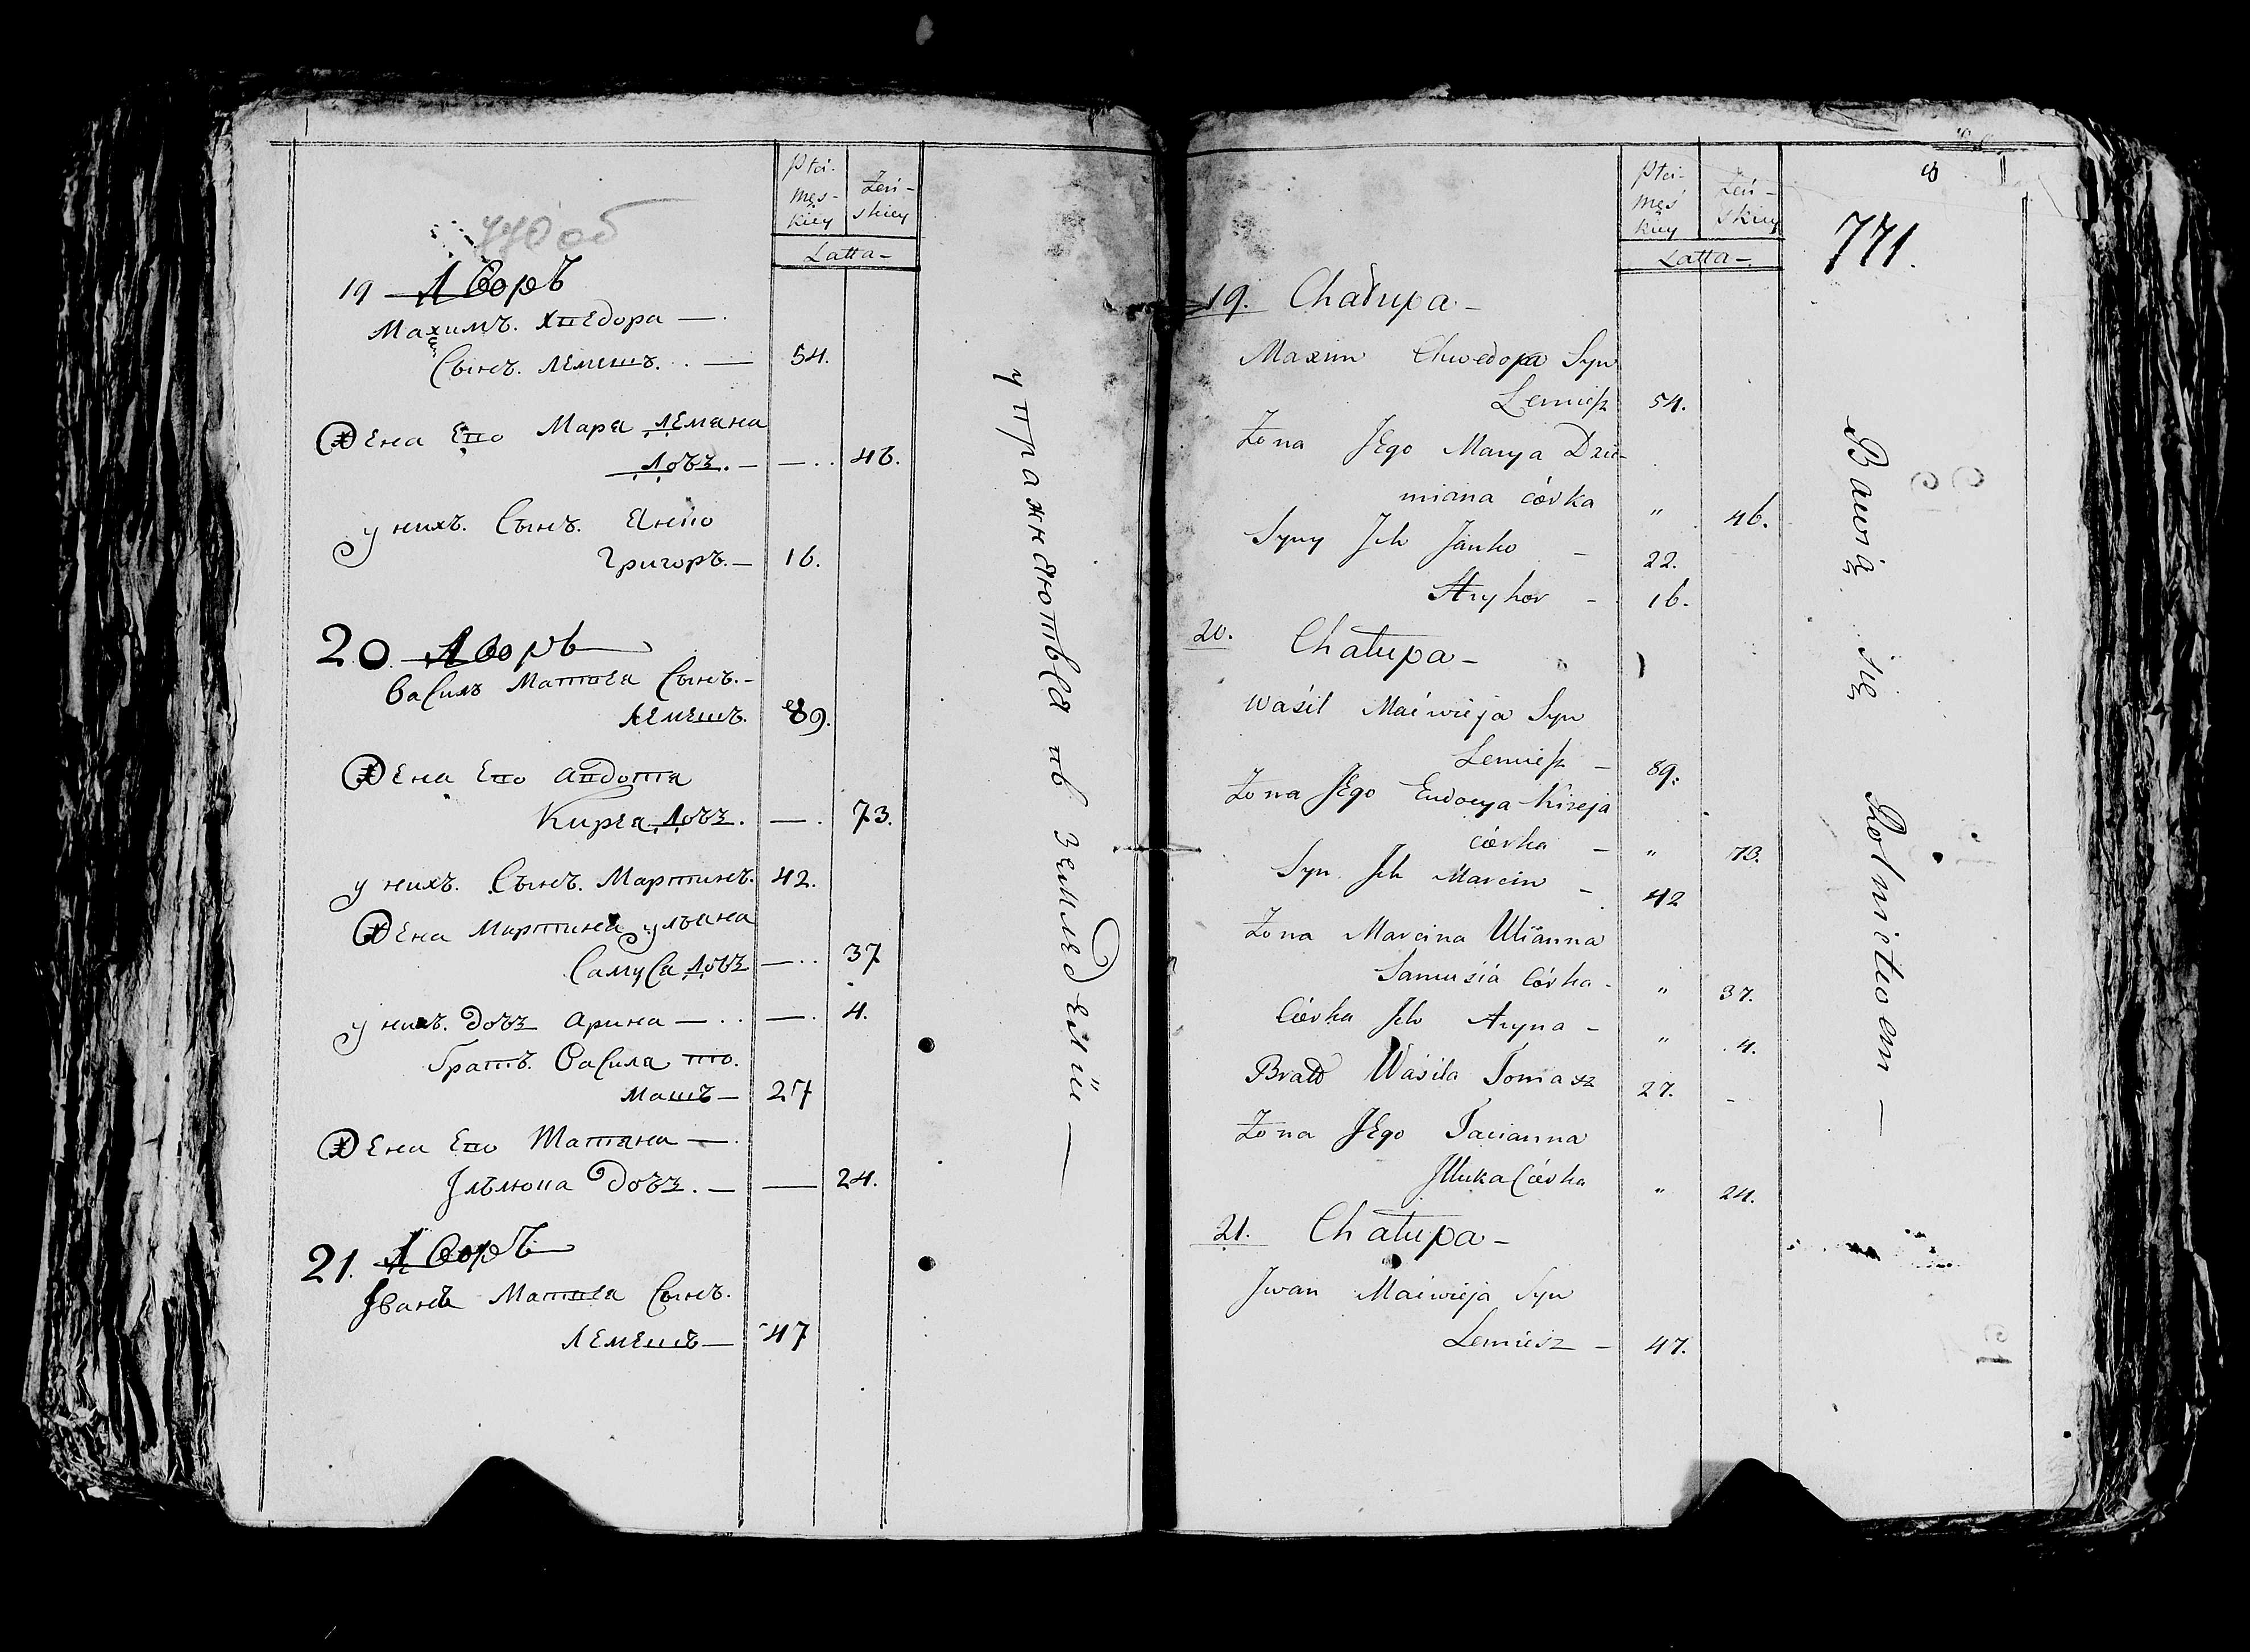 770 об
Płci
męs-
kiey
żeń-
skiey
Latta-
19 Дворъ
Махимъ. Хведора —.
Сынъ. лемешъ. . — 54.
Жена Ево Маря
довз. — — . . 46.
у нихъ. Сынъ.
Григоръ. — 16.
20. Дворъ
Василъ Матвея Сынъ. -
лемешъ. 89.
Жена Ево авдотя
Кирея довз. — . 73.
у нихъ. Сынъ. Мартинъ. 42.
Жена Мартина ульяна
Самуся довз — . . 37
у нихъ. довз арина — . . — . 4.
братъ. Василя то.
машъ — 27
Жена Ево Татяна — .
довз. — — 24.
21. Дворъ
Іванъ Матвея Сынъ.
лемешъ — 47
упражняютъся въ земледелїи —
771.
Płci-
męs
kiey
żeń-
skiey
Latta-
19. Chałupa -
Maxim Chwedora Syn
Lemiesz 54.
Żona JEgo Marya Dzie-
miana córka " 46.
Syny Jch Janko - 22.
Hryhor - 16.
20. Chałupa -
Waśil Maćwieja Syn
Lemiesz - 89.
Żona JEgo Eudocya Kireja
córka - " 73.
Syn Jch Marcin - 42
Żona Marcina Ulianna
Samusia Córka - " 37.
Córka Jch Aryna - " 4.
Bratt Waśila Tomasz 27. -
Żona JEgo Tacianna
Córka " 24.
21. Chałupa -
Jwan Maćwieja Syn
Lemiesz - 47.
Bawią się Rolnictwem —